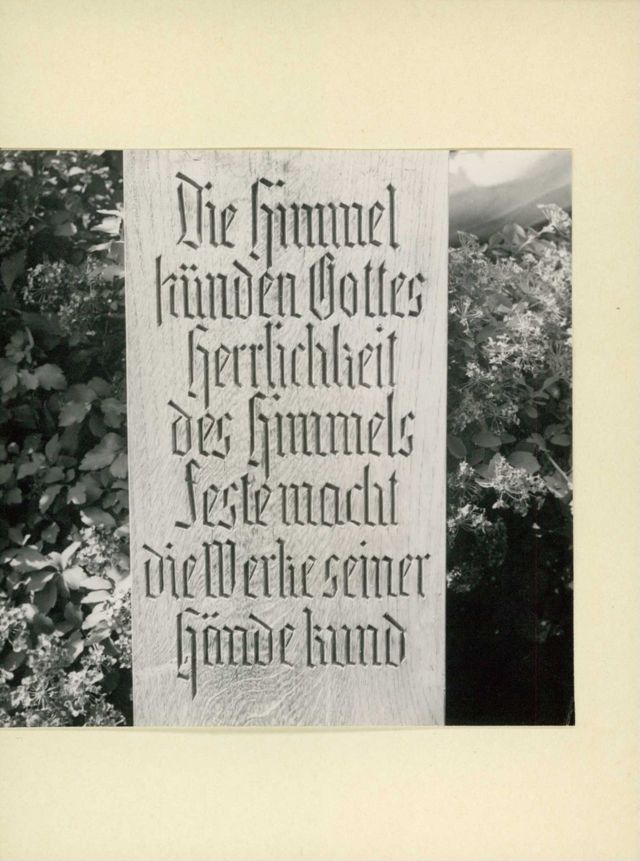 Die Himmel
künden Gottes
Herrlichkeit
des Himmels
Feste macht
die Werke seiner
Hände kund